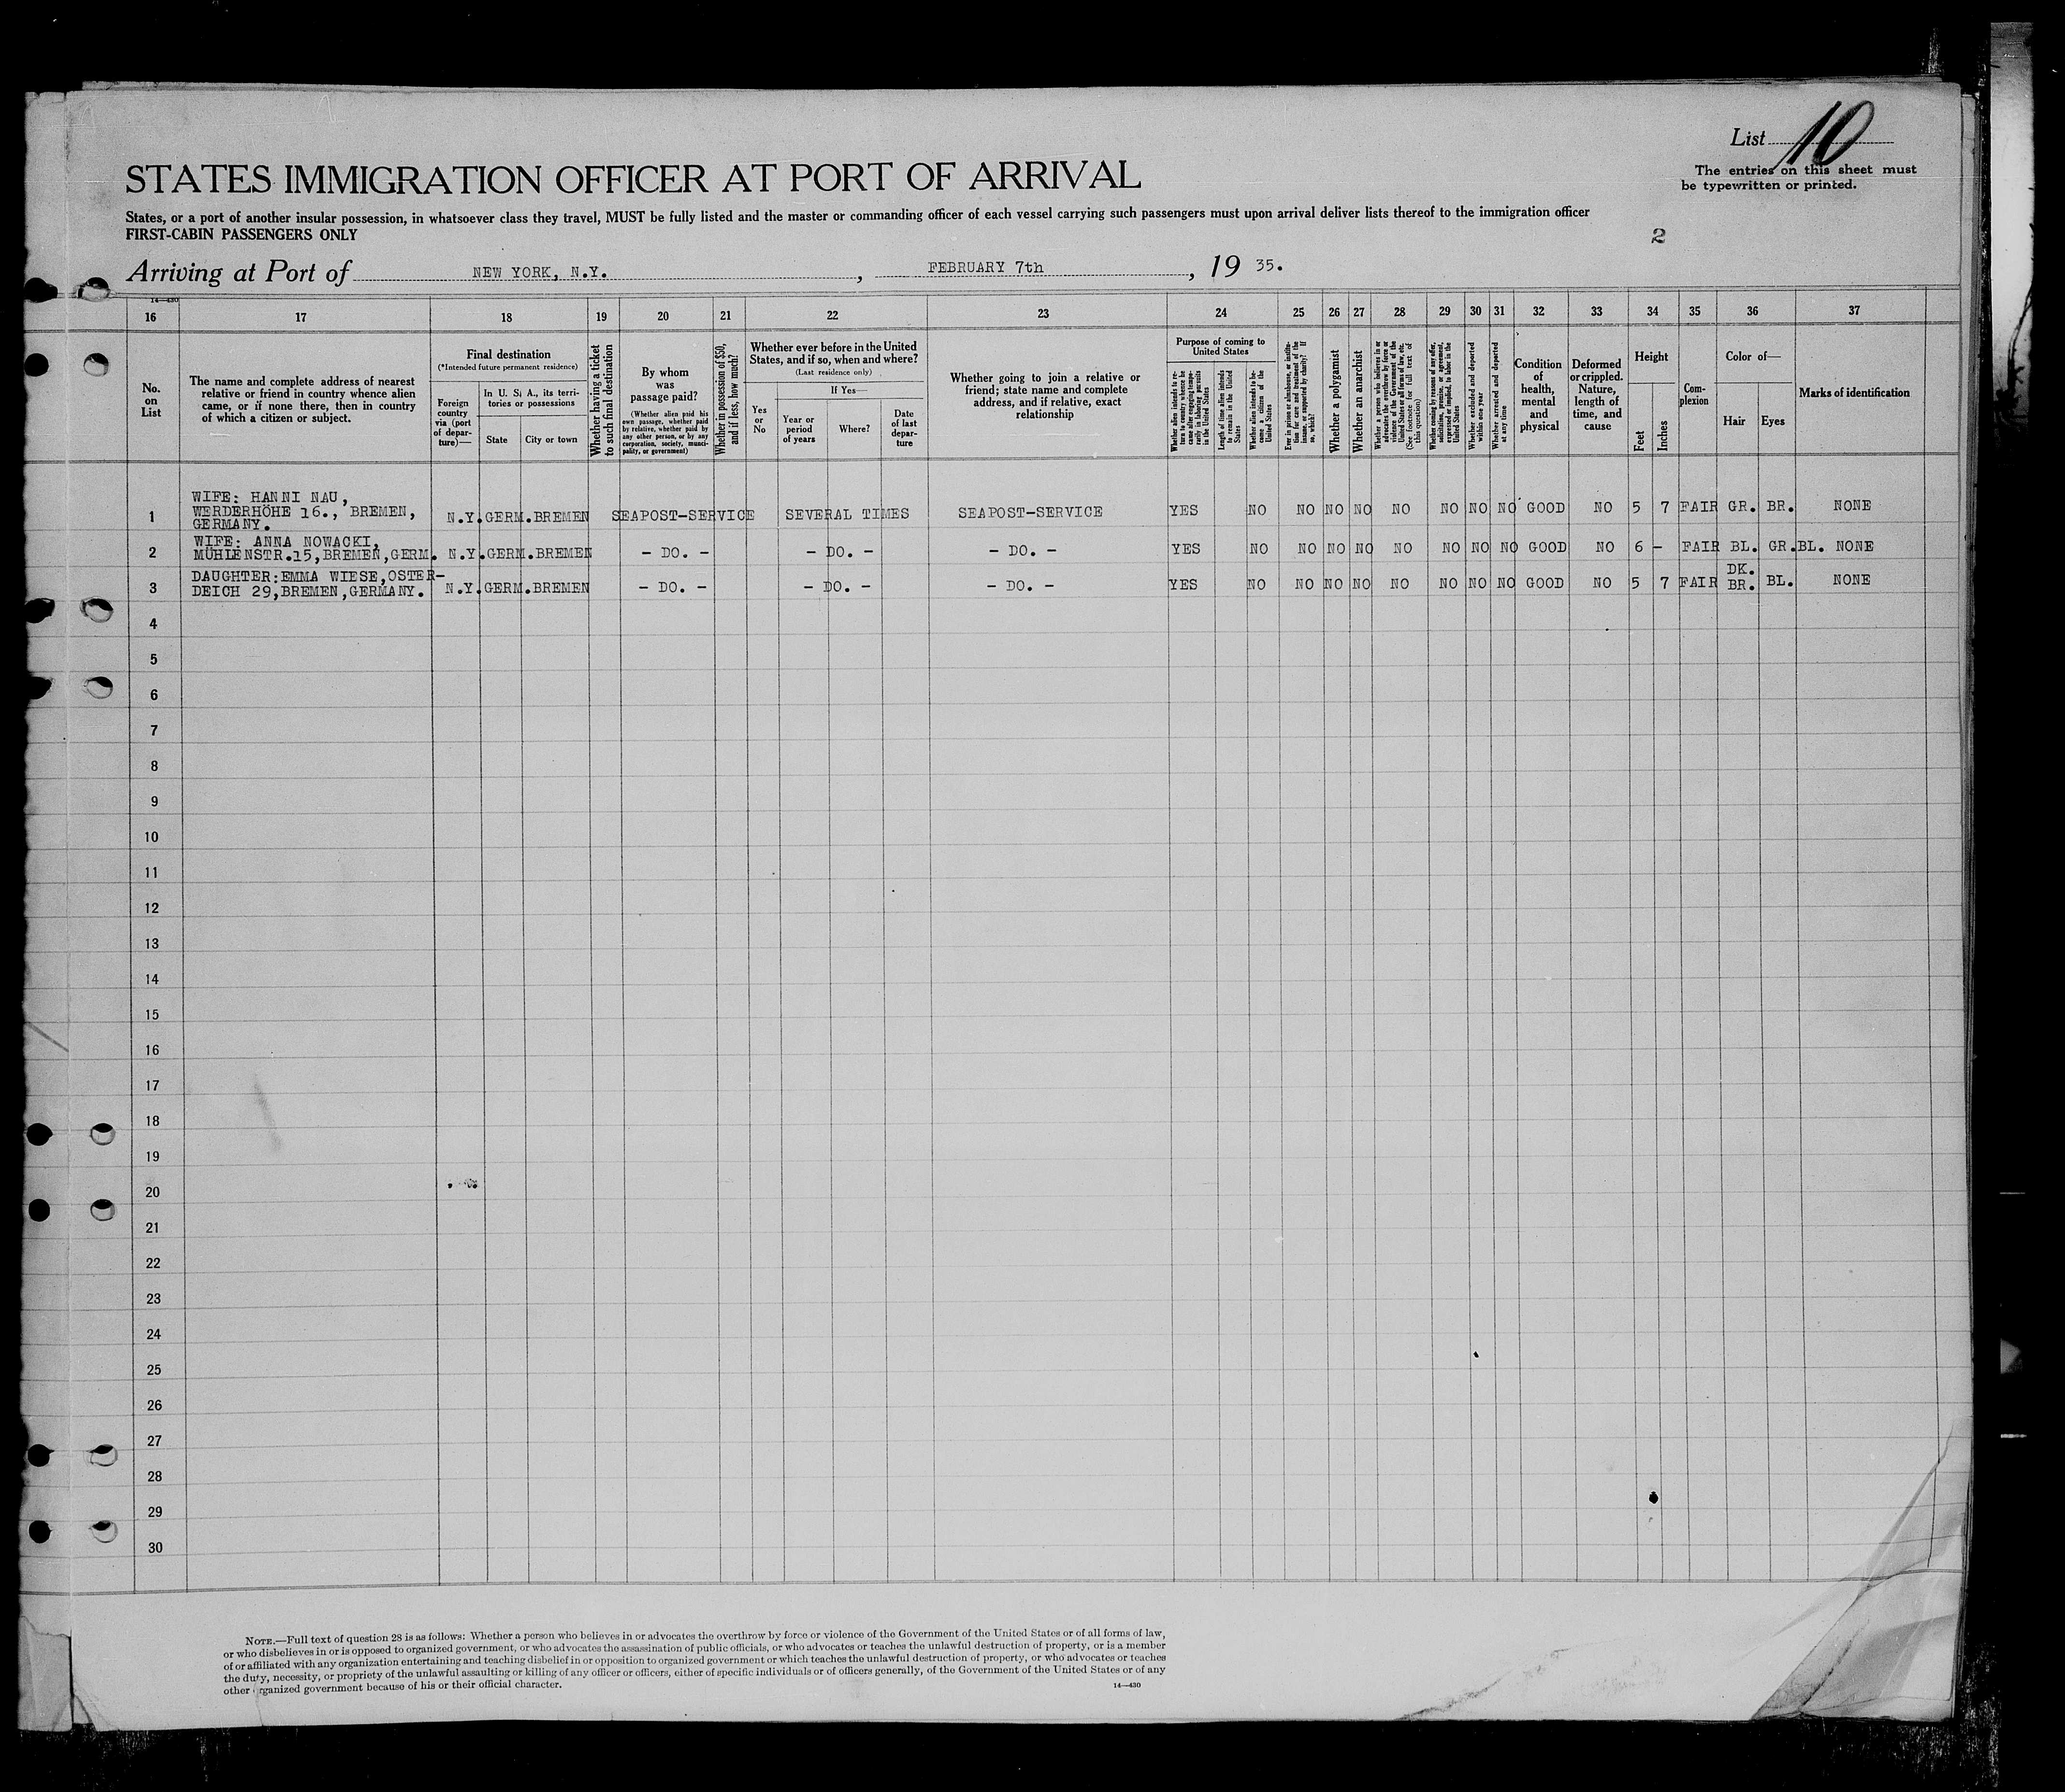 List 10
The entries on this sheet must
be typewritten or printed.
STATES IMMIGRATION OFFICER AT PORT OF ARRIVAL
States, or a port of another insular possession, in whatsoever class they travel, MUST be fully listed and the master or commanding officer of each vessel carrying such passengers must upon arrival deliver lists thereof to the immigration officer
FIRST-CABIN PASSENGERS ONLY
2
Arriving at Port of NEW YORK, N.Y., FEBRUARY 7th, 19 35.
14—430
16 17 18 19 20 21 22 23 24 25 26 27 28 29 30 31 32 33 34 35 36 37
No.
on
List
The name and complete address of nearest
relative or friend in country whence alien
came, or if none there, then in country
of which a citizen or subject.
Final destination
(*Intended future permanent residence)
Foreign
country
via (port
of depar-
ture)—
In U. S. A., its terri-
tories or possessions
State
City or town
Whether having a ticket
to such final destination
By whom
was
passage paid?
(Whether alien paid his
own passage, whether paid
by relative, whether paid by
any other person, or by any
corporation, society, munici-
pality, or government)
Whether in possession of $50,
and if less, how much?
Whether ever before in the United
States, and if so, when and where?
(Last residence only)
Yes
or
No
If Yes—
Year or
period
of years
Where?
Date
of last
depar-
ture
Whether going to join a relative or
friend; state name and complete
address, and if relative, exact
relationship
Purpose of coming to
United States
Whether alien intends to re-
turn to country whence he
came after engaging tempo-
rarily in laboring pursuits
in the United States
Length of time alien intends
to remain in the United
States
Whether alien intends to be-
come a citizen of the
United States
Ever in prison or almshouse, or institu-
tion for care and treatment of the
insane, or supported by charity? If
so, which?
Whether a polygamist
Whether an anarchist
Whether a person who believes in or
advocates the overthrow by force or
violence of the Government of the
United States or all forms of law, etc.
(See footnote for full text of
this question)
Whether coming by reason of any offer,
solicitation, promise, or agreement,
expressed or implied, to labor in the
United States
Whether excluded and deported
within one year
Whether arrested and deported
at any time
Condition
of
health,
mental
and
physical
Deformed
or crippled.
Nature,
length of
time, and
cause
Height
Feet
Inches
Com-
plexion
Color of—
Hair
Eyes
Marks of identification
WIFE: HANNI NAU,
1 WERDERHÖHE 16., BREMEN, N.Y. GERM. BREMEN SEAPOST-SERVICE SEVERAL TIMES SEAPOST-SERVICE YES NO NO NO NO NO NO NO NO GOOD NO 5 7 FAIR GR. BR. NONE
GERMANY.
WIFE: ANNA NOWACKI,
2 MÜHLENSTR.15, BREMEN, GERM. N.Y. GERM. BREMEN - DO. - - DO. - - DO. - YES NO NO NO NO NO NO NO NO GOOD NO 6 - FAIR BL. GR.BL. NONE
DAUGHTER: EMMA WIESE, OSTER-
3 DEICH 29, BREMEN, GERMANY. N.Y. GERM. BREMEN - DO. - - DO. - - DO. - YES NO NO NO NO NO NO NO NO GOOD NO 5 7 FAIR DK. BR. BL. NONE
4
5
6
7
8
9
10
11
12
13
14
15
16
17
18
19
20
21
22
23
24
25
26
27
28
29
30
NOTE.—Full text of question 28 is as follows: Whether a person who believes in or advocates the overthrow by force or violence of the Government of the United States or of all forms of law,
or who disbelieves in or is opposed to organized government, or who advocates the assassination of public officials, or who advocates or teaches the unlawful destruction of property, or is a member
of or affiliated with any organization entertaining and teaching disbelief in or opposition to organized government or which teaches the unlawful destruction of property, or who advocates or teaches
the duty, necessity, or propriety of the unlawful assaulting or killing of any officer or officers, either of specific individuals or of officers generally, of the Government of the United States or of any
other organized government because of his or their official character.
14—430